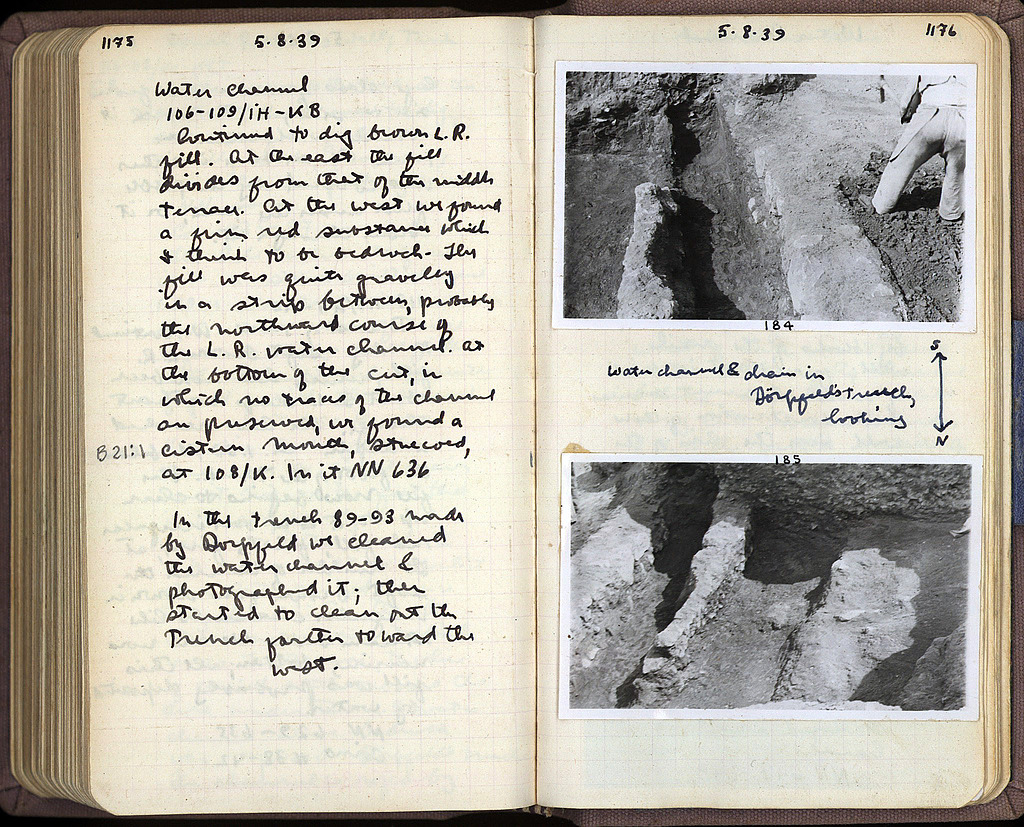 1175
5·8·39
Water channel
106-109/ΙΗ-ΚΒ
Continued to dig brown L.R.
fill. At the east the fill
divides from that of the middle
terrace. At the west we found
a firm red substance which
I think to be bedrock. The
fill was quite gravelly
in a strip between, probably
the northward course of
the L.R. water channel. At
the bottom of the cut, in
which no traces of the channel
are preserved, we found a
B 21:1 cistern mouth, stuccoed,
at 108/K. In it NN 636
In the trench 89-93 made
by Dörpfeld we cleaned
the water channel &
photographed it; then
started to clean out the
trench farther toward the
west.
5·8·39
1176
184
S
water channel & drain in
Dörpfeld's trench,
looking
N
185